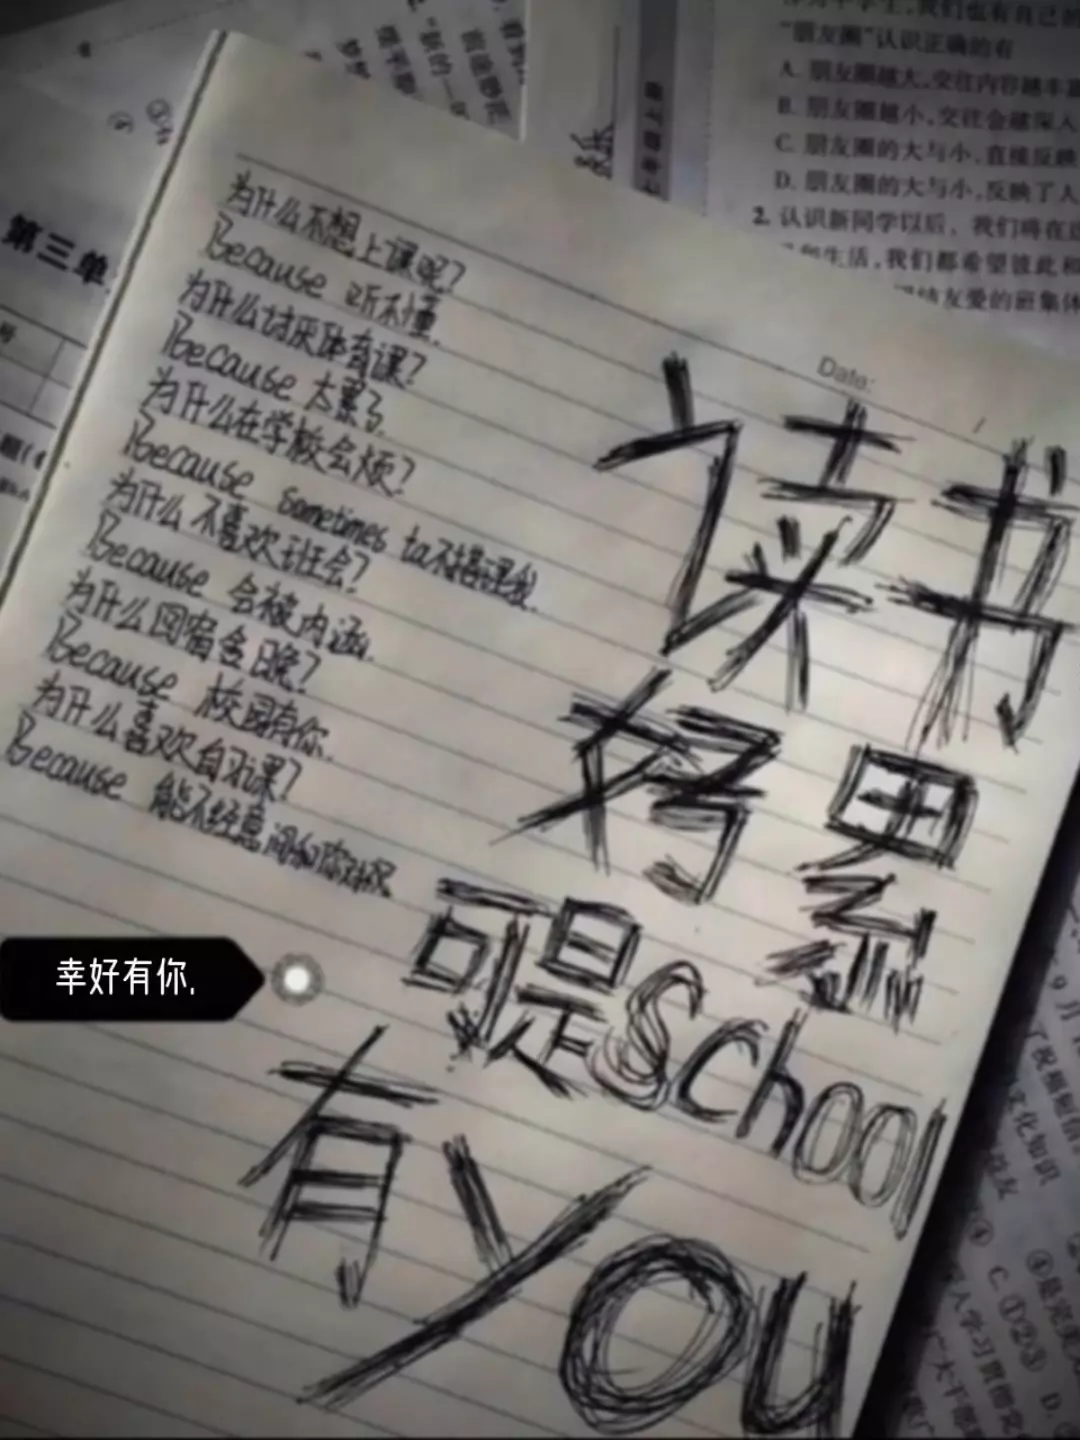 为什么不想上课呢?
Because 听不懂.
为什么讨厌体育课?
Because 太累了.
为什么在学校会烦?
Because sometimes ta不搭理我.
为什么不喜欢班会?
Because 会被内涵.
为什么回宿舍晚?
Because 校园有你.
为什么喜欢自习课?
Because 能不经意间和你对视
Date:
读书
好累
可是School
有you
幸好有你.
第三单
“朋友圈”认识正确的有
A. 朋友圈越大,交往内容越丰富
B. 朋友圈越小,交往会越深入
C. 朋友圈的大与小,直接反映
D. 朋友圈的大与小,反映了人
2. 认识新同学以后，我们将在这
生活,我们都希望彼此和
友爱的班集体